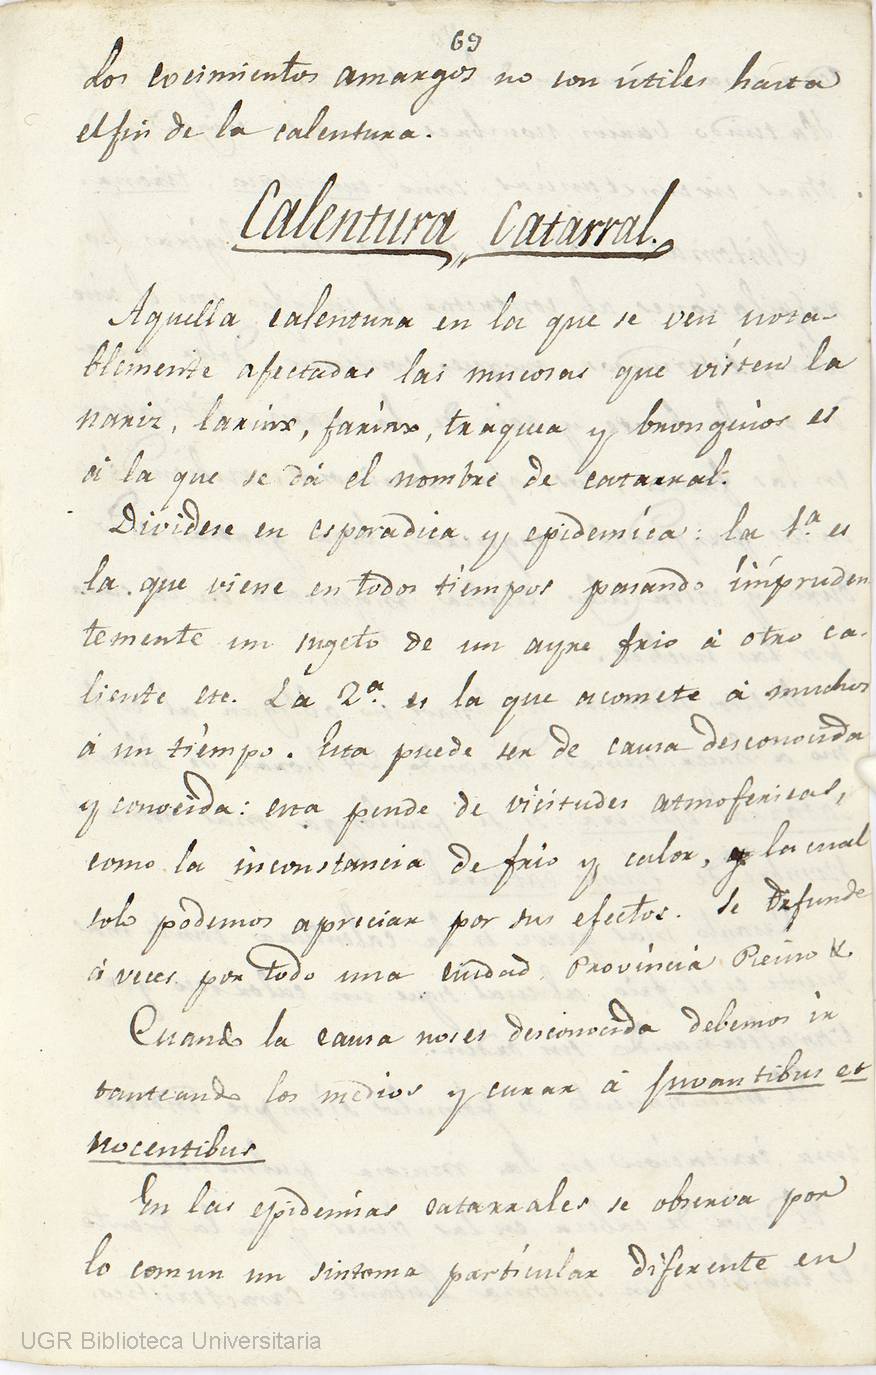 69
Los cocimientos amargos no son útiles hasta
el fin de la calentura.
Calentura Catarral.
Aquella calentura en la que se ven nota-
blemente afectadas las mucosas que visten la
nariz, larinx, farinx, traquea y bronquios es
á la que se dá el nombre de catarral.
Dividese en esporadica y epidemica: la 1.ª es
la que viene en todos tiempos pasando impruden
temente un sugeto de un ayre frio á otro ca-
liente etc. La 2.ª es la que acomete á muchos
á un tiempo. Esta puede ser de causa desconocida
y conocida: esta pende de vicitudes atmofericas,
como la inconstancia de frio y calor, y la cual
solo podemos apreciar por sus efectos. Se difunde
á veces por todo una ciudad Provincia Reino &.
Cuando la causa nos es desconocida debemos ir
tanteando los medios y curar á juvantibus et
nocentibus
En las epidemias catarrales se observa por
lo comun un sintoma particular diferente en
UGR Biblioteca Universitaria